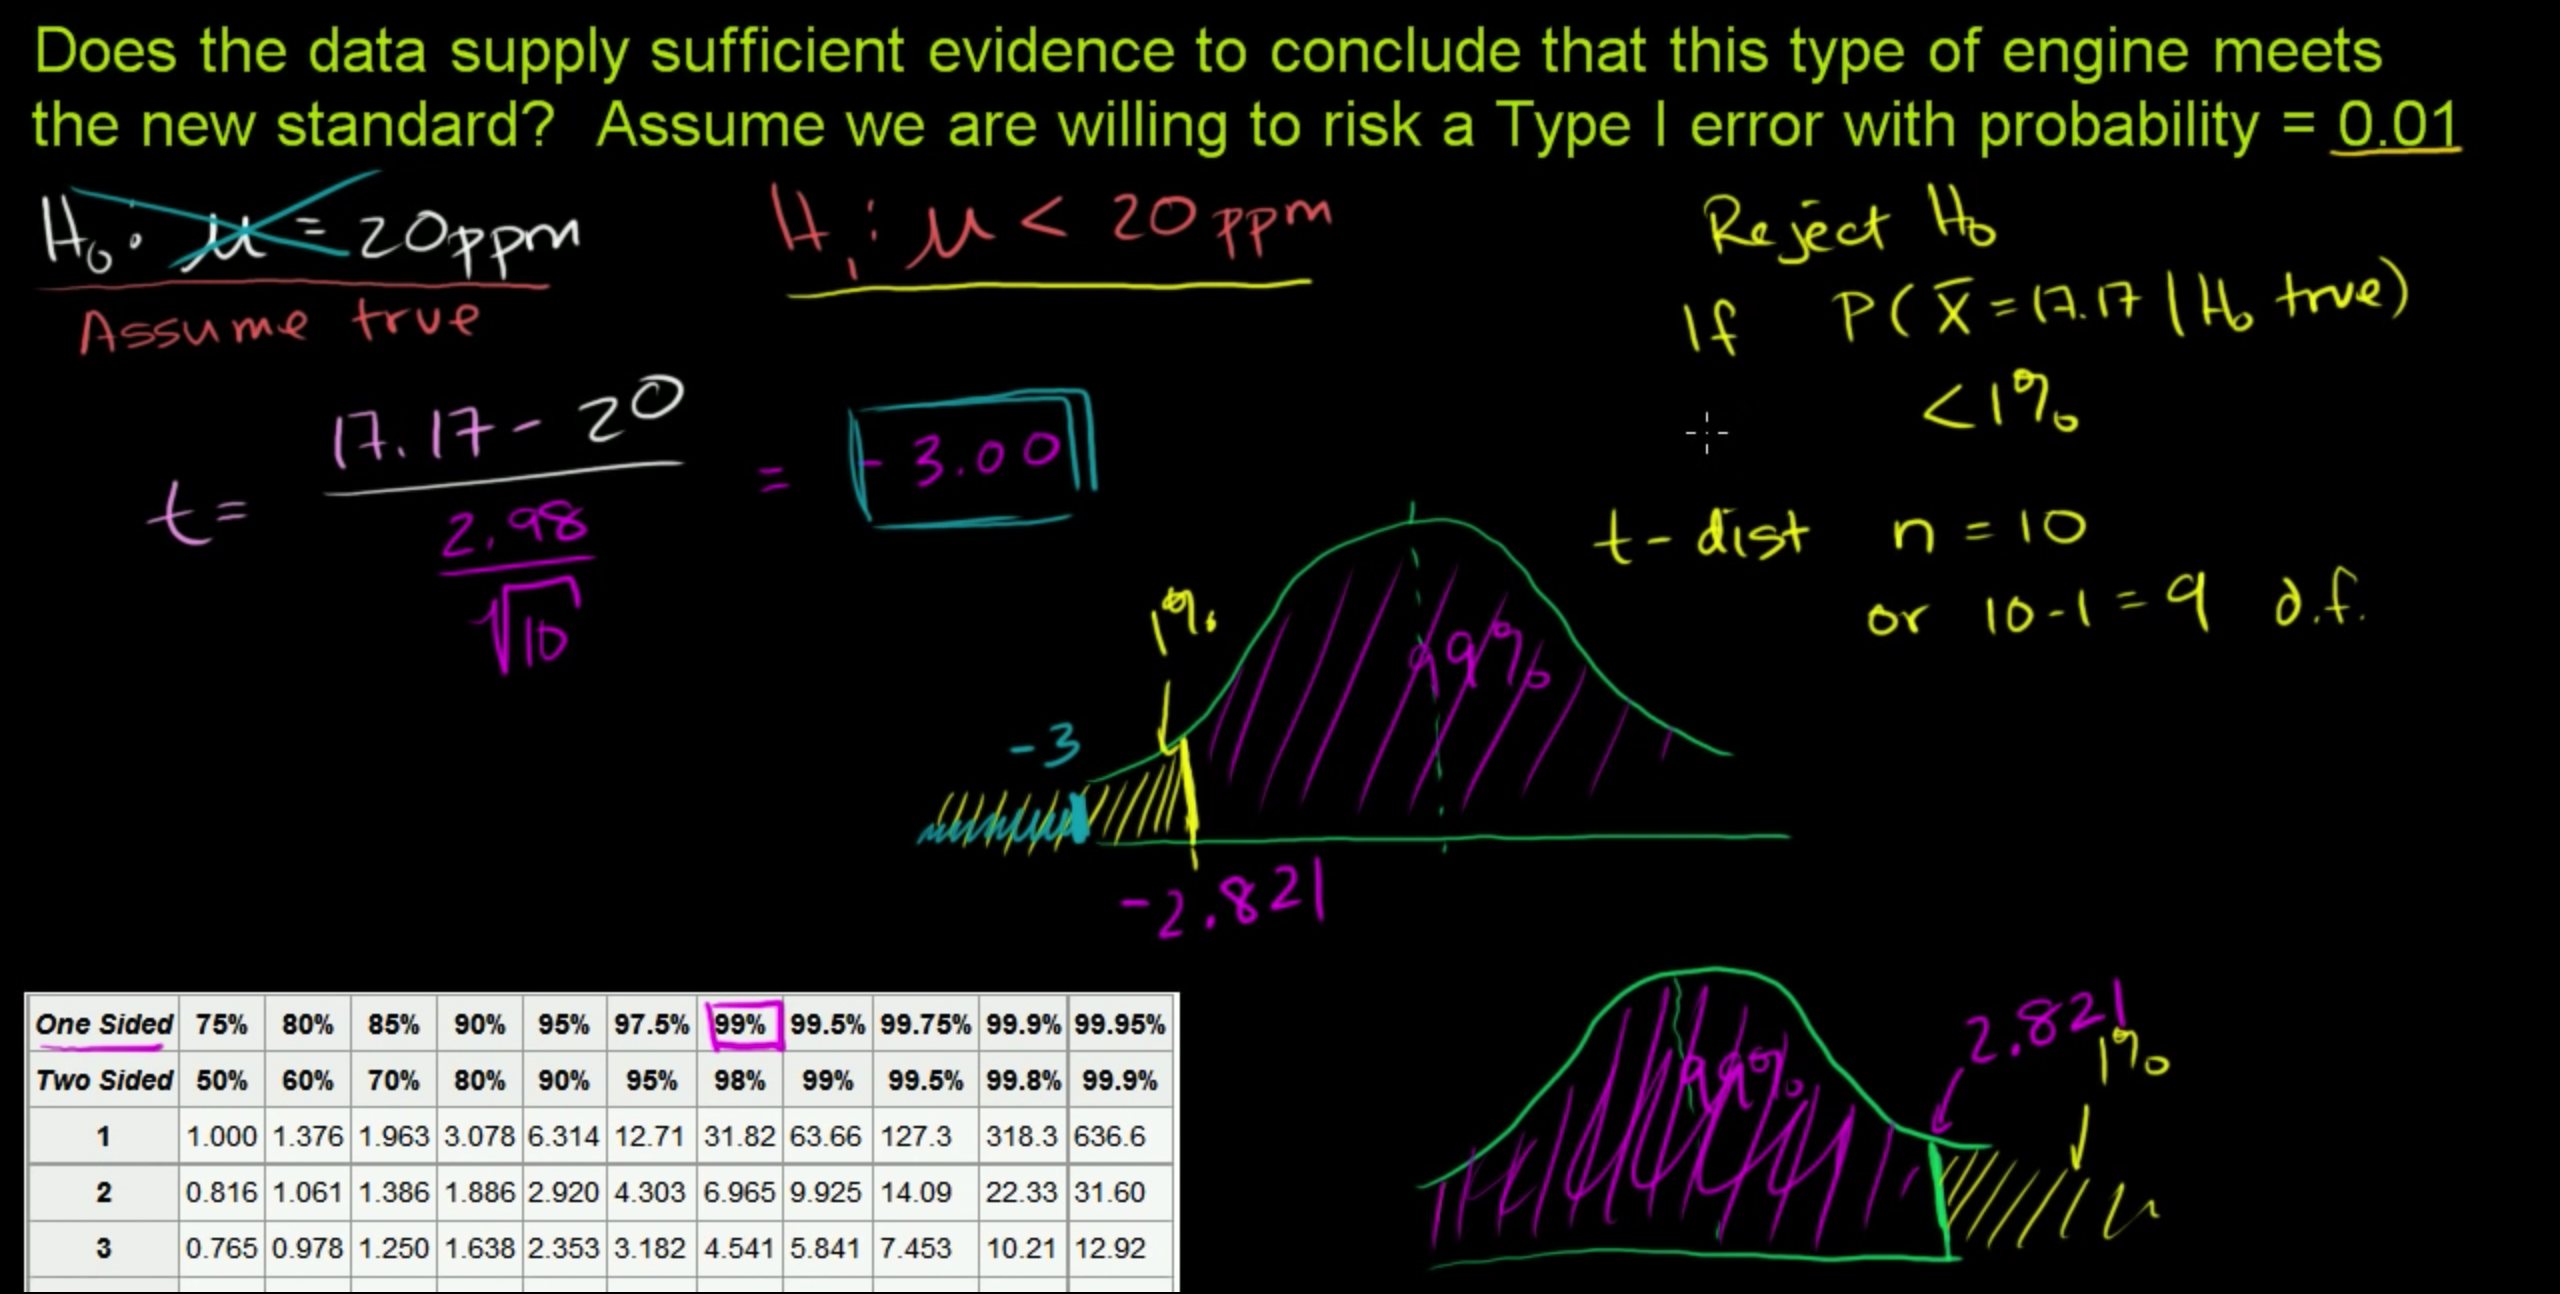 Does the data supply sufficient evidence to conclude that this type of engine meets
the new standard? Assume we are willing to risk a Type I error with probability = 0.01
H₀: μ = 20ppm
Assume true
H₁: μ < 20ppm
Reject H₀
If P(x̄ = 17.17 | H₀ true)
< 1%
t = (17.17 - 20) / (2.98 / √10) = -3.00
t-dist n = 10
or 10-1 = 9 d.f.
1%
99%
-3
-2.821
2.821
1%
99%
One Sided 75% 80% 85% 90% 95% 97.5% 99% 99.5% 99.75% 99.9% 99.95%
Two Sided 50% 60% 70% 80% 90% 95% 98% 99% 99.5% 99.8% 99.9%
1 1.000 1.376 1.963 3.078 6.314 12.71 31.82 63.66 127.3 318.3 636.6
2 0.816 1.061 1.386 1.886 2.920 4.303 6.965 9.925 14.09 22.33 31.60
3 0.765 0.978 1.250 1.638 2.353 3.182 4.541 5.841 7.453 10.21 12.92